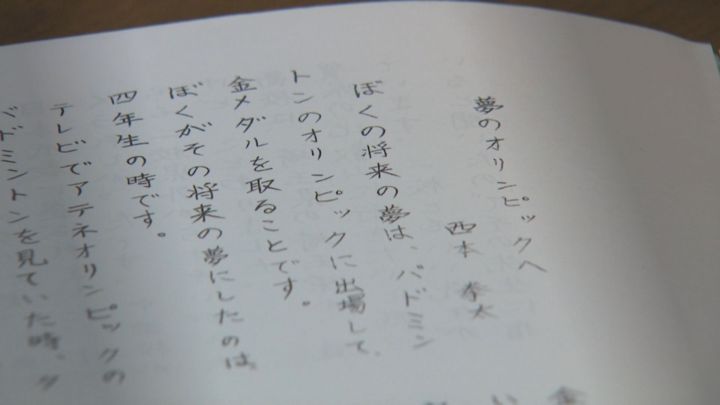 夢のオリンピックへ
西本 拳太
ぼくの将来の夢は、バドミン
トンのオリンピックに出場して、
金メダルを取ることです。
ぼくがその将来の夢にしたのは、
四年生の時です。
テレビでアテネオリンピックの
バドミントンを見ていた時、